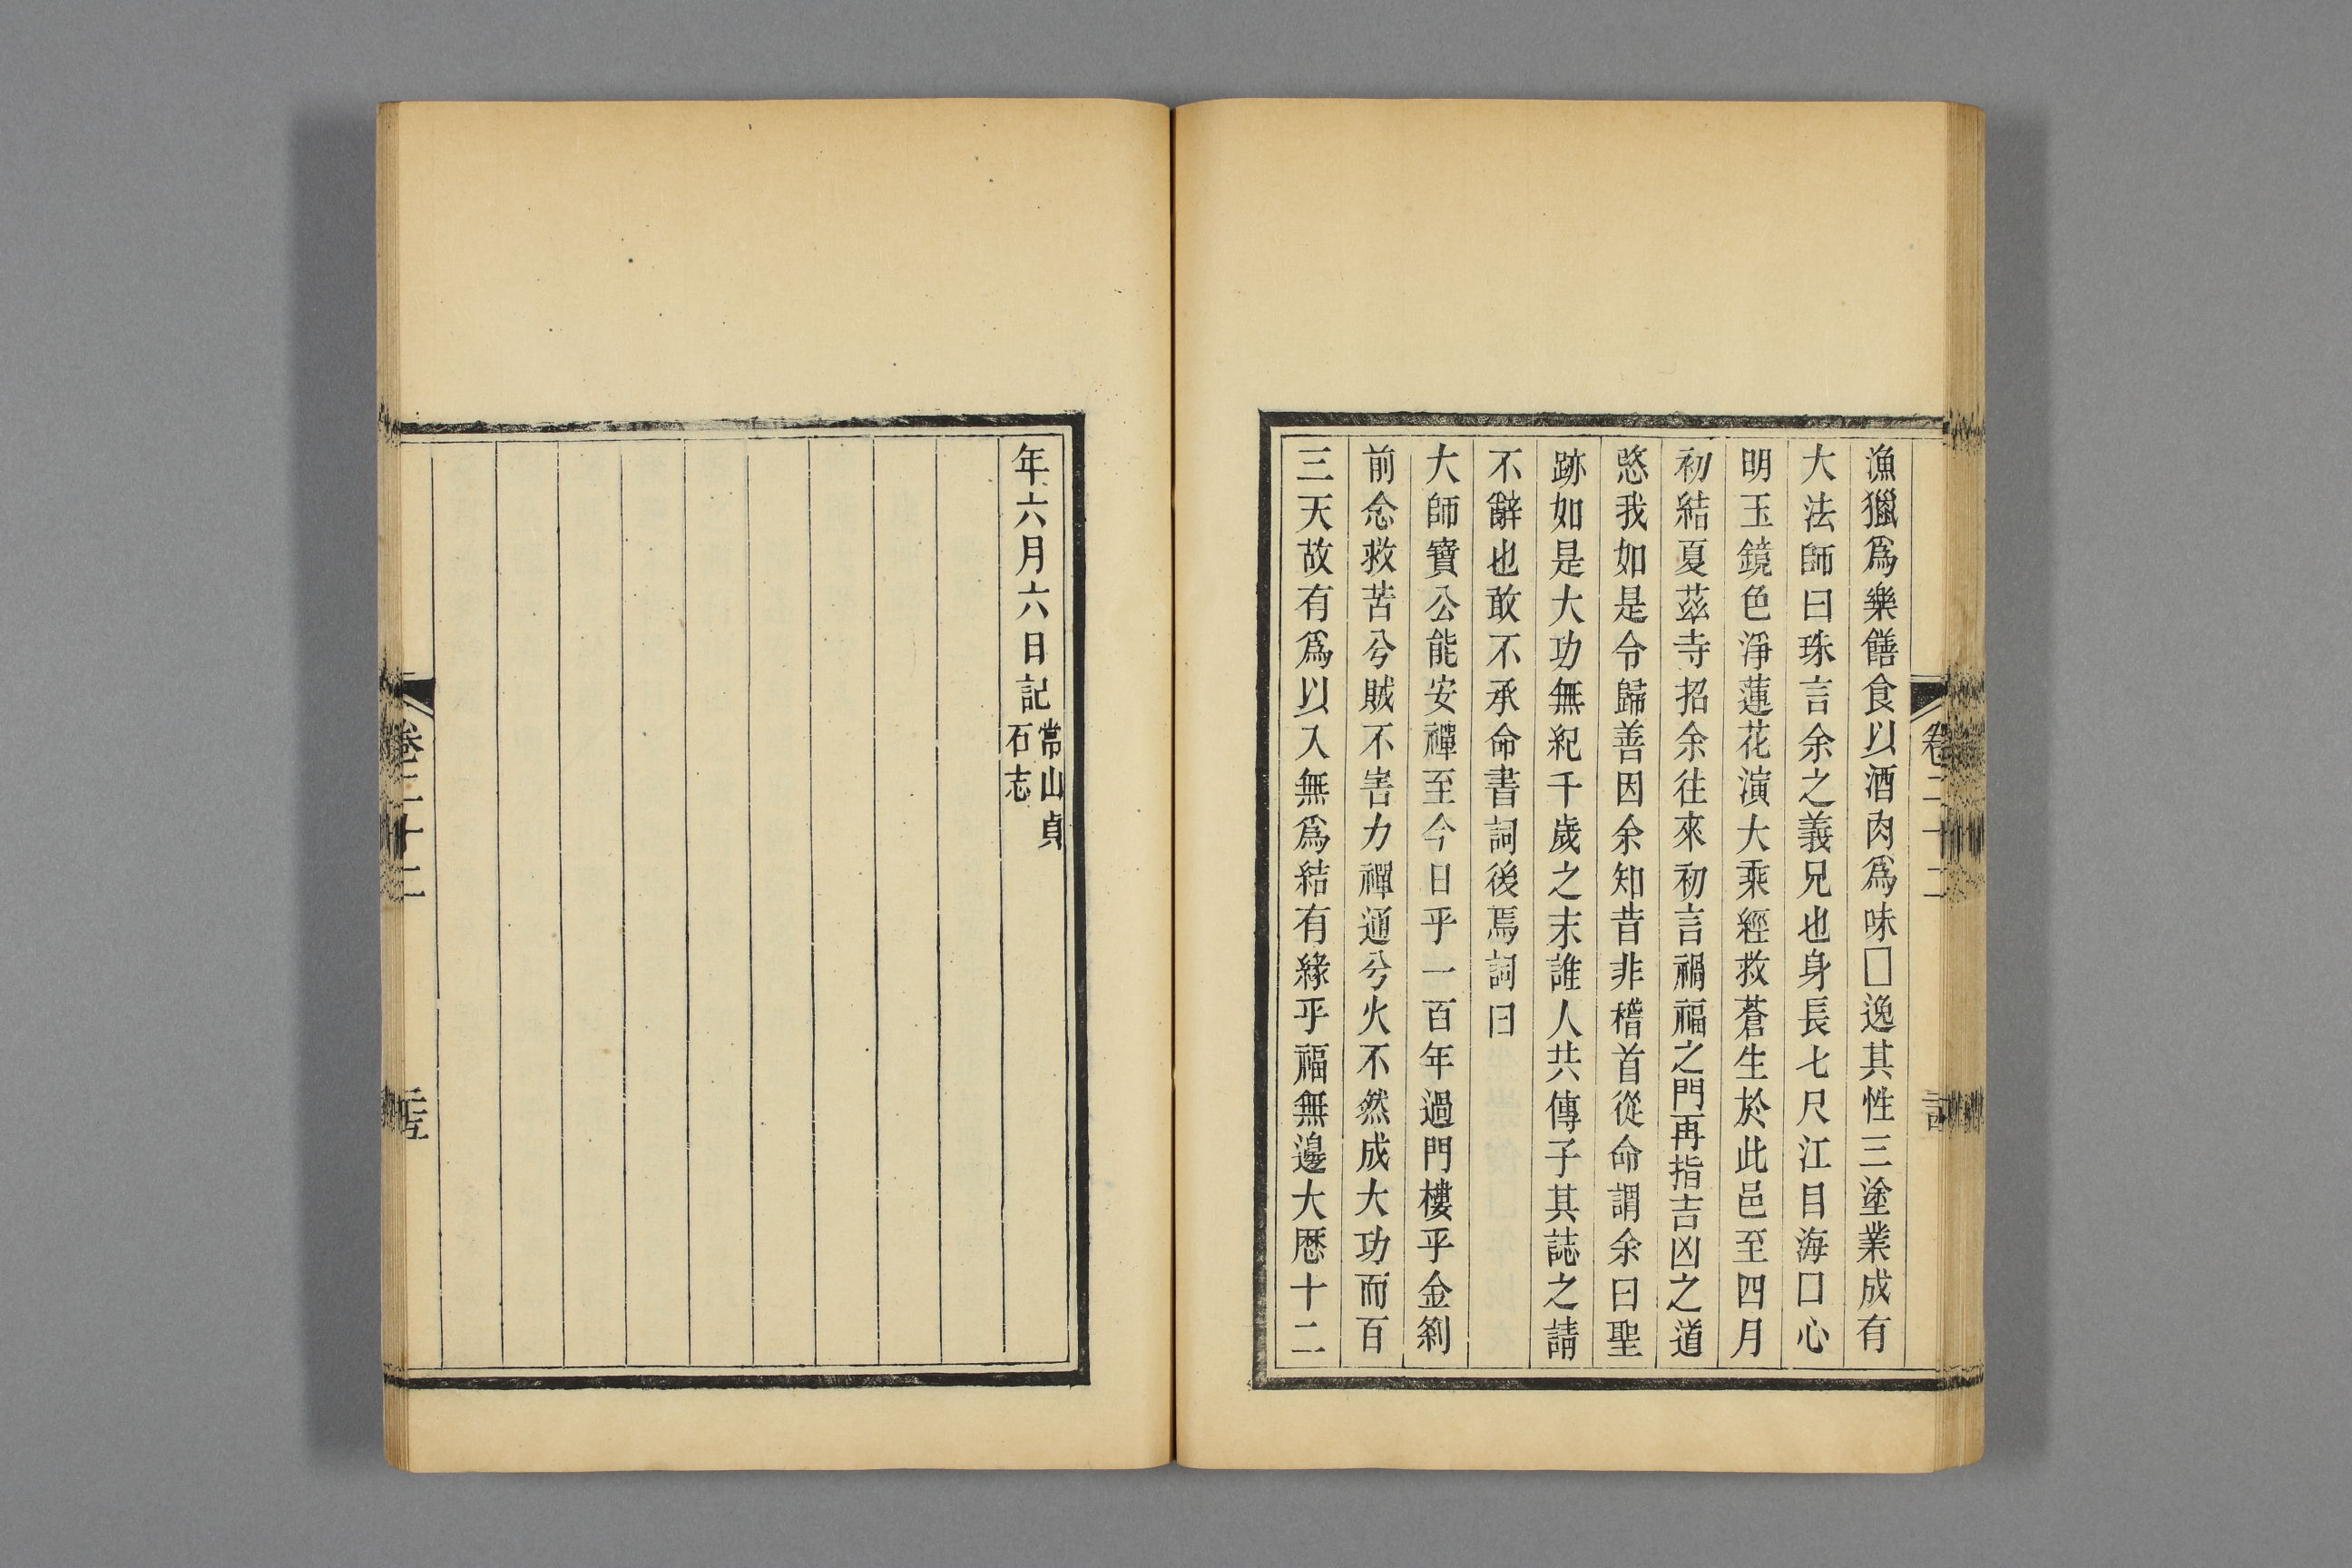 漁獵爲樂饍食以酒肉爲味□逸其性三塗業成有
大法師曰珠言余之義兄也身長七尺江目海口心
明玉鏡色淨蓮花演大乘經救蒼生於此邑至四月
初結夏茲寺招余往來初言禍福之門再指吉凶之道
慜我如是令歸善因余知昔非稽首從命謂余曰聖
跡如是大功無紀千歲之末誰人共傳子其誌之請
不辭也敢不承命書詞後焉詞曰
大師寶公能安禪至今日乎一百年過門樓乎金剎
前念救苦兮賊不害力禪通兮火不然成大功而百
三天故有爲以入無爲結有緣乎福無邊大厯十二
年六月六日記常山貞石志
卷二十二
卷二十二